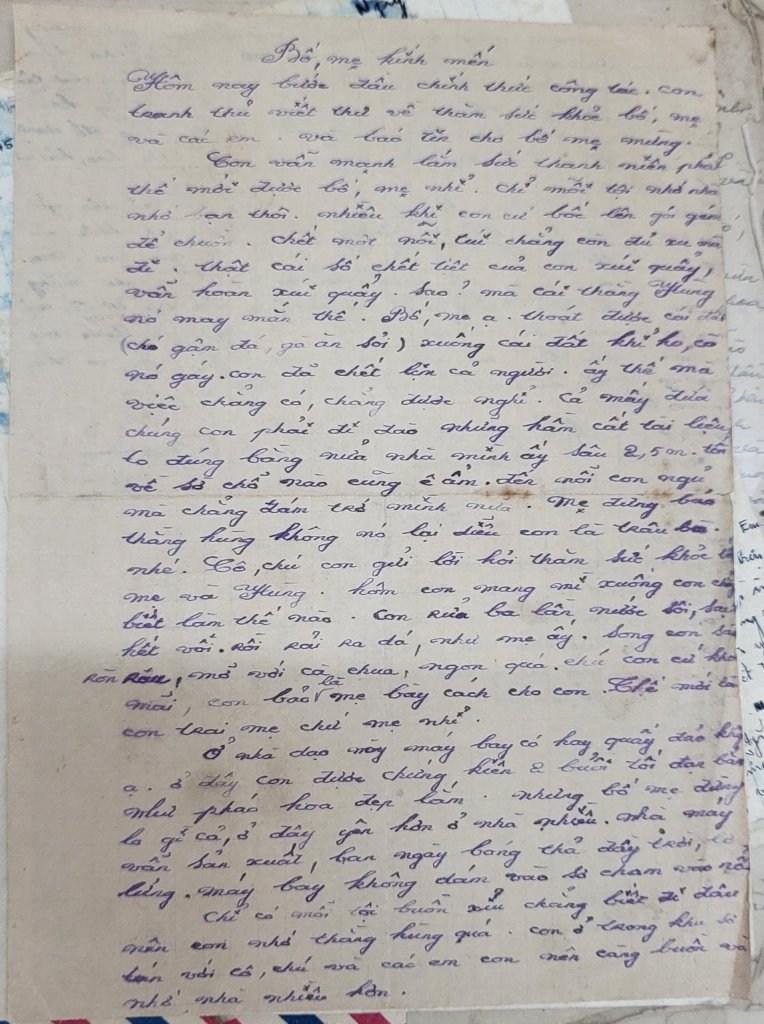 Bố, mẹ kính mến
Hôm nay bước đầu chính thức công tác. con
tranh thủ viết thư về thăm sức khỏe bố, mẹ
và các em. và báo tin cho bố mẹ mừng.
Con vẫn mạnh lắm sức thanh niên phải
thế mới được bố, mẹ nhỉ. chỉ mỗi tội nhớ nhà
nhớ bạn thôi. nhiều khi con cứ bốc lên gói gém
để chuồn. chết một nỗi, túi chẳng còn đủ xu mà
đi. thật cái số chết tiệt của con xúi quẩy,
vẫn hoàn xúi quẩy. sao? mà cái thằng Hùng
nó may mắn thế. Bố, mẹ ạ. thoát được cái đất
(chó gậm đá, gà ăn sỏi) xuống cái đất khỉ ho, cò
nó gáy. con đã chết lặn cả người. ấy thế mà
việc chẳng có, chẳng được nghỉ. cả mấy đứa
chúng con phải đi đào những hầm cất tài liệu,
to đúng bằng nửa nhà mình ấy sâu 2,5m. tối
về sờ chỗ nào cũng ê ẩm. đến nỗi con ngủ
mà chẳng dám trở mình nữa. Mẹ đừng bảo
thằng hùng không nó lại diễu con là trâu bò.
nhé. Cô, chú con gửi lời hỏi thăm sức khỏe bố
mẹ và Hùng. hôm con mang mì xuống con chẳng
biết làm thế nào. con rửa ba lần nước sôi, sạch
hết vôi. rồi rải ra đá, như mẹ ấy. song con
rán, mỡ với cà chua, ngon quá. chú con cứ khen
mãi, con bảo là mẹ bày cách cho con. Thế mới là
con trai mẹ chứ mẹ nhỉ.
Ở nhà dạo này máy bay có hay quấy đảo không
ạ. ở đây con được chứng kiến 2 buổi tối đạn bắn
như pháo hoa đẹp lắm. nhưng bố mẹ đừng
lo gì cả, ở đây yên hơn ở nhà nhiều. nhà máy
vẫn sản xuất, ban ngày bóng thả đầy trời, lơ
lửng. máy bay không dám vào sợ chạm vào nổ
Chỉ có mỗi tội buồn xỉu chẳng biết đi đâu
nên con nhớ thằng hùng quá. con ở trong khu sơ
tán với cô, chú và các em con nên càng buồn và
nhớ nhà nhiều hơn.